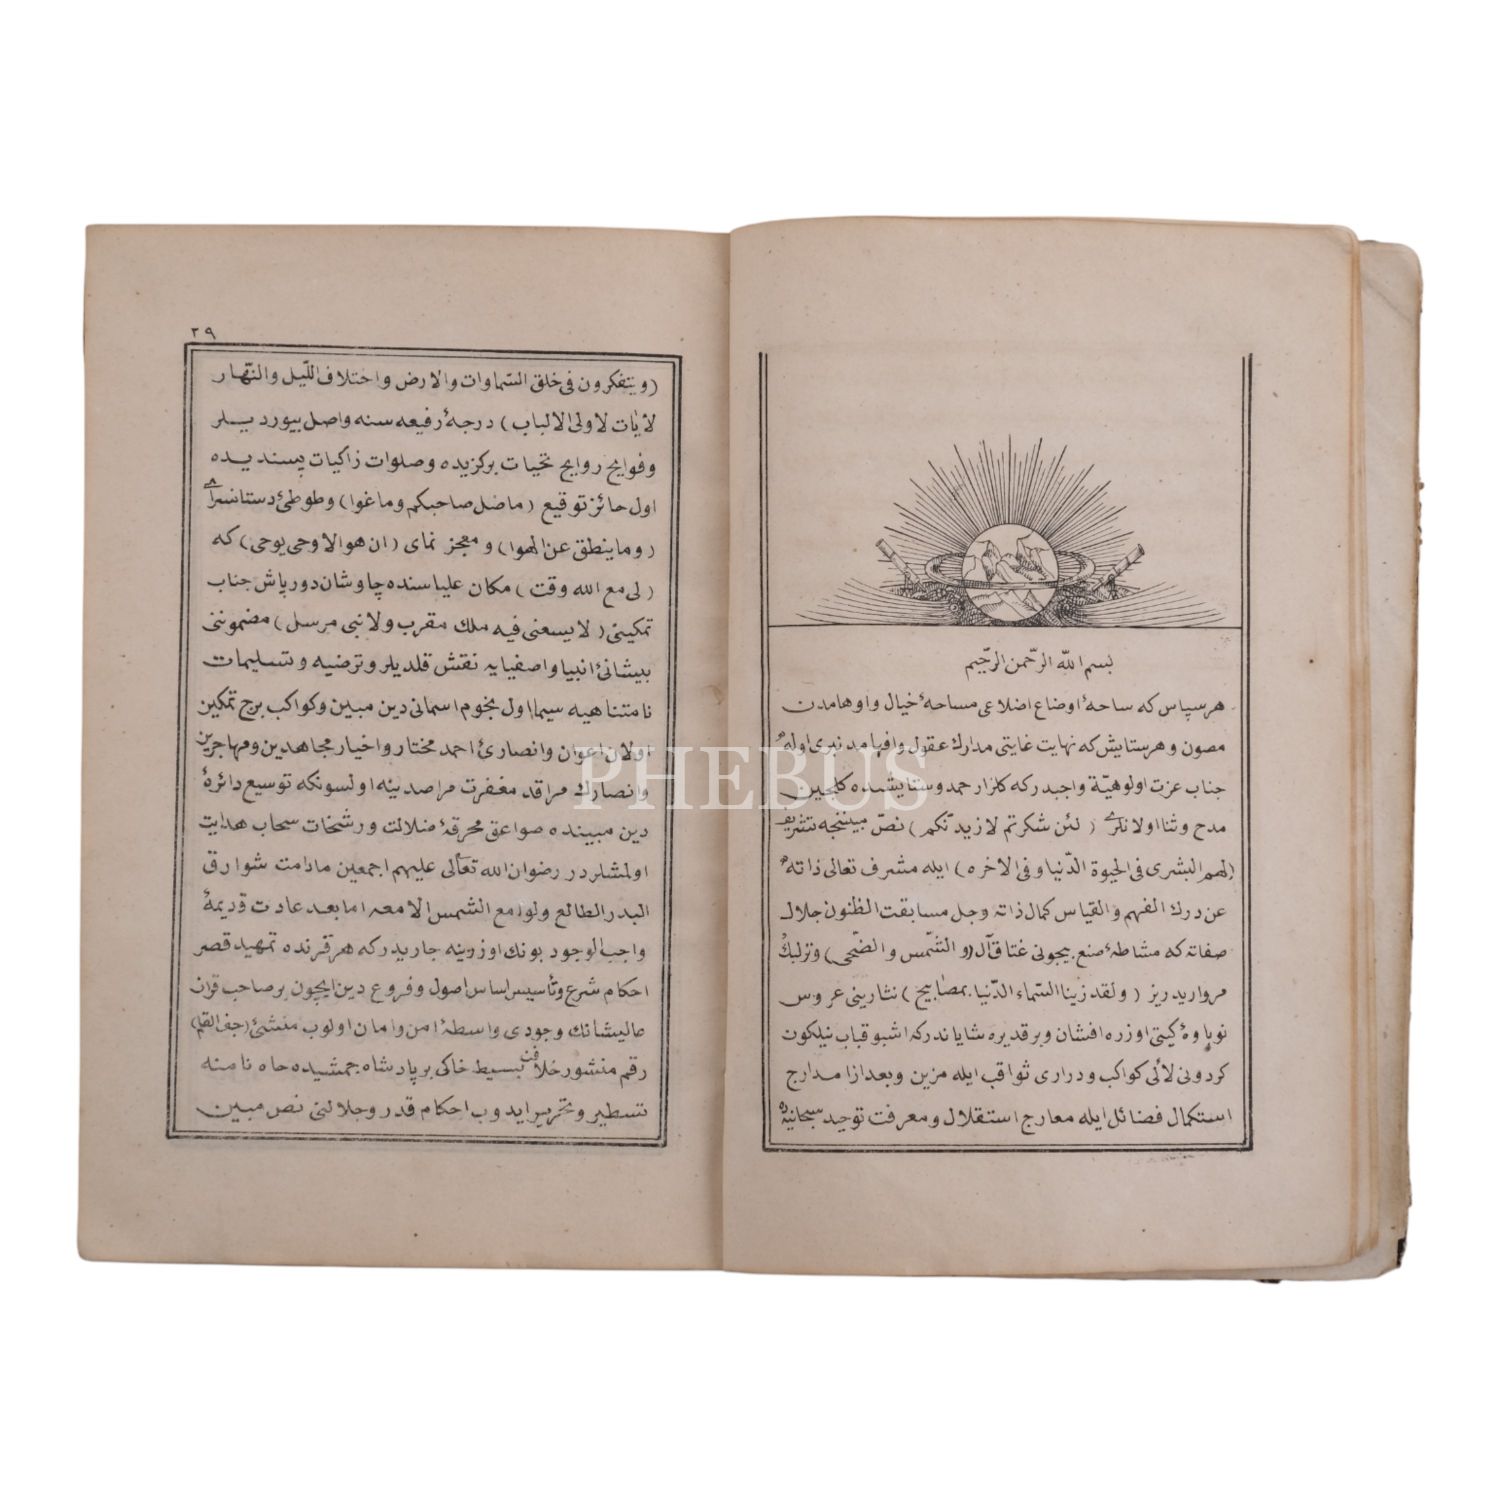 بسم الله الرّحمن الرّحيم
هر سپاس كه ساحهٔ اوضاع اضلاعی مساحهٔ خيال و اوهامدن
مصون و هر ستايش كه نهايت غايتی مدارك عقول و افهامدن بری اوله
جناب عزت اولوهيّة واجبدركه كلزار حمد و ستايشده كلچين
مدح و ثنا اولانلری (لئن شكرتم لازيدنّكم) نصّ مبينجه تشريف
(لهم البشری فی الحيوة الدّنيا و فی الاخره) ايله مشرف تعالی ذاته
عن درك الفهم والقياس كمال ذاته وجل مسابقت الظنون جلال
صفاته كه مشاطهٔ صنع بيچونی غتا قآل (والشّمس والضّحی) وترلبك
مرواريد ريز (ولقد زينا السّماء الدّنيا بمصابيح) نثارينی عروس
نوباوهٔ كيتی اوزره افشان و بر قديره شاياندركه اشبو قباب نيلكون
كردونی لائی كواكب و دراری ثواقب ايله مزين و بعد ازا مدارج
استكمال فضائل ايله معارج استقلال و معرفت توحيد سبحانيه
٢٩
(ويتفكرون فی خلق السّماوات والارض واختلاف اللّيل والنّهار
لاٰيات لاولی الالباب) درجهٔ رفيعه سنه واصل بيوردیلر
و فوايح روايح تحيات بركزيده و صلوات زاكيات پسنديده
اول حائز توقيع (ماضل صاحبكم وماغوا) و طوطئ دستانسرای
(وما ينطق عن الهوا) و معجز نمای (ان هو الا وحی يوحی) كه
(لی مع الله وقت) مكان علياسنده چاوشان دورباش جناب
تمكينی (لا يسعنی فيه ملك مقرب ولا نبی مرسل) مضموننی
پيشانئ انبيا و اصفيايه نقش قلديلر و ترضيه و تسليمات
نامتناهيه سيما اول نجوم اسمانی دين مبين و كواكب برج تمكين
اولان اعوان و انصاری احمد مختار و اخيار مجاهدين و مهاجرين
و انصارك مراقد مغفرت مراصدينه اولسونكه توسيع دائرهٔ
دين مبينده صواعق محرقهٔ ضلالت و رشحات سحاب هدايت
اولمشلردر رضوان الله تعالی عليهم اجمعين مادامت شوارق
البدر الطالع ولوامع الشمس الامعه اما بعد عادت قديمهٔ
واجب الوجود بونك اوزرينه جاريدركه هر قرنده تمهيد قصر
احكام شرع و تأسيس اساس اصول و فروع دين ايچون بر صاحب قران
عاليشانك وجودی واسطهٔ امن و امان اولوب منشئ (جف القلم)
رقم منشور خلافت بسيط خاكی بر پادشاه جمشيده جاه نامنه
تسطير و تحرير ايدوب احكام قدر و جلالنی نص مبين
PHEBUS